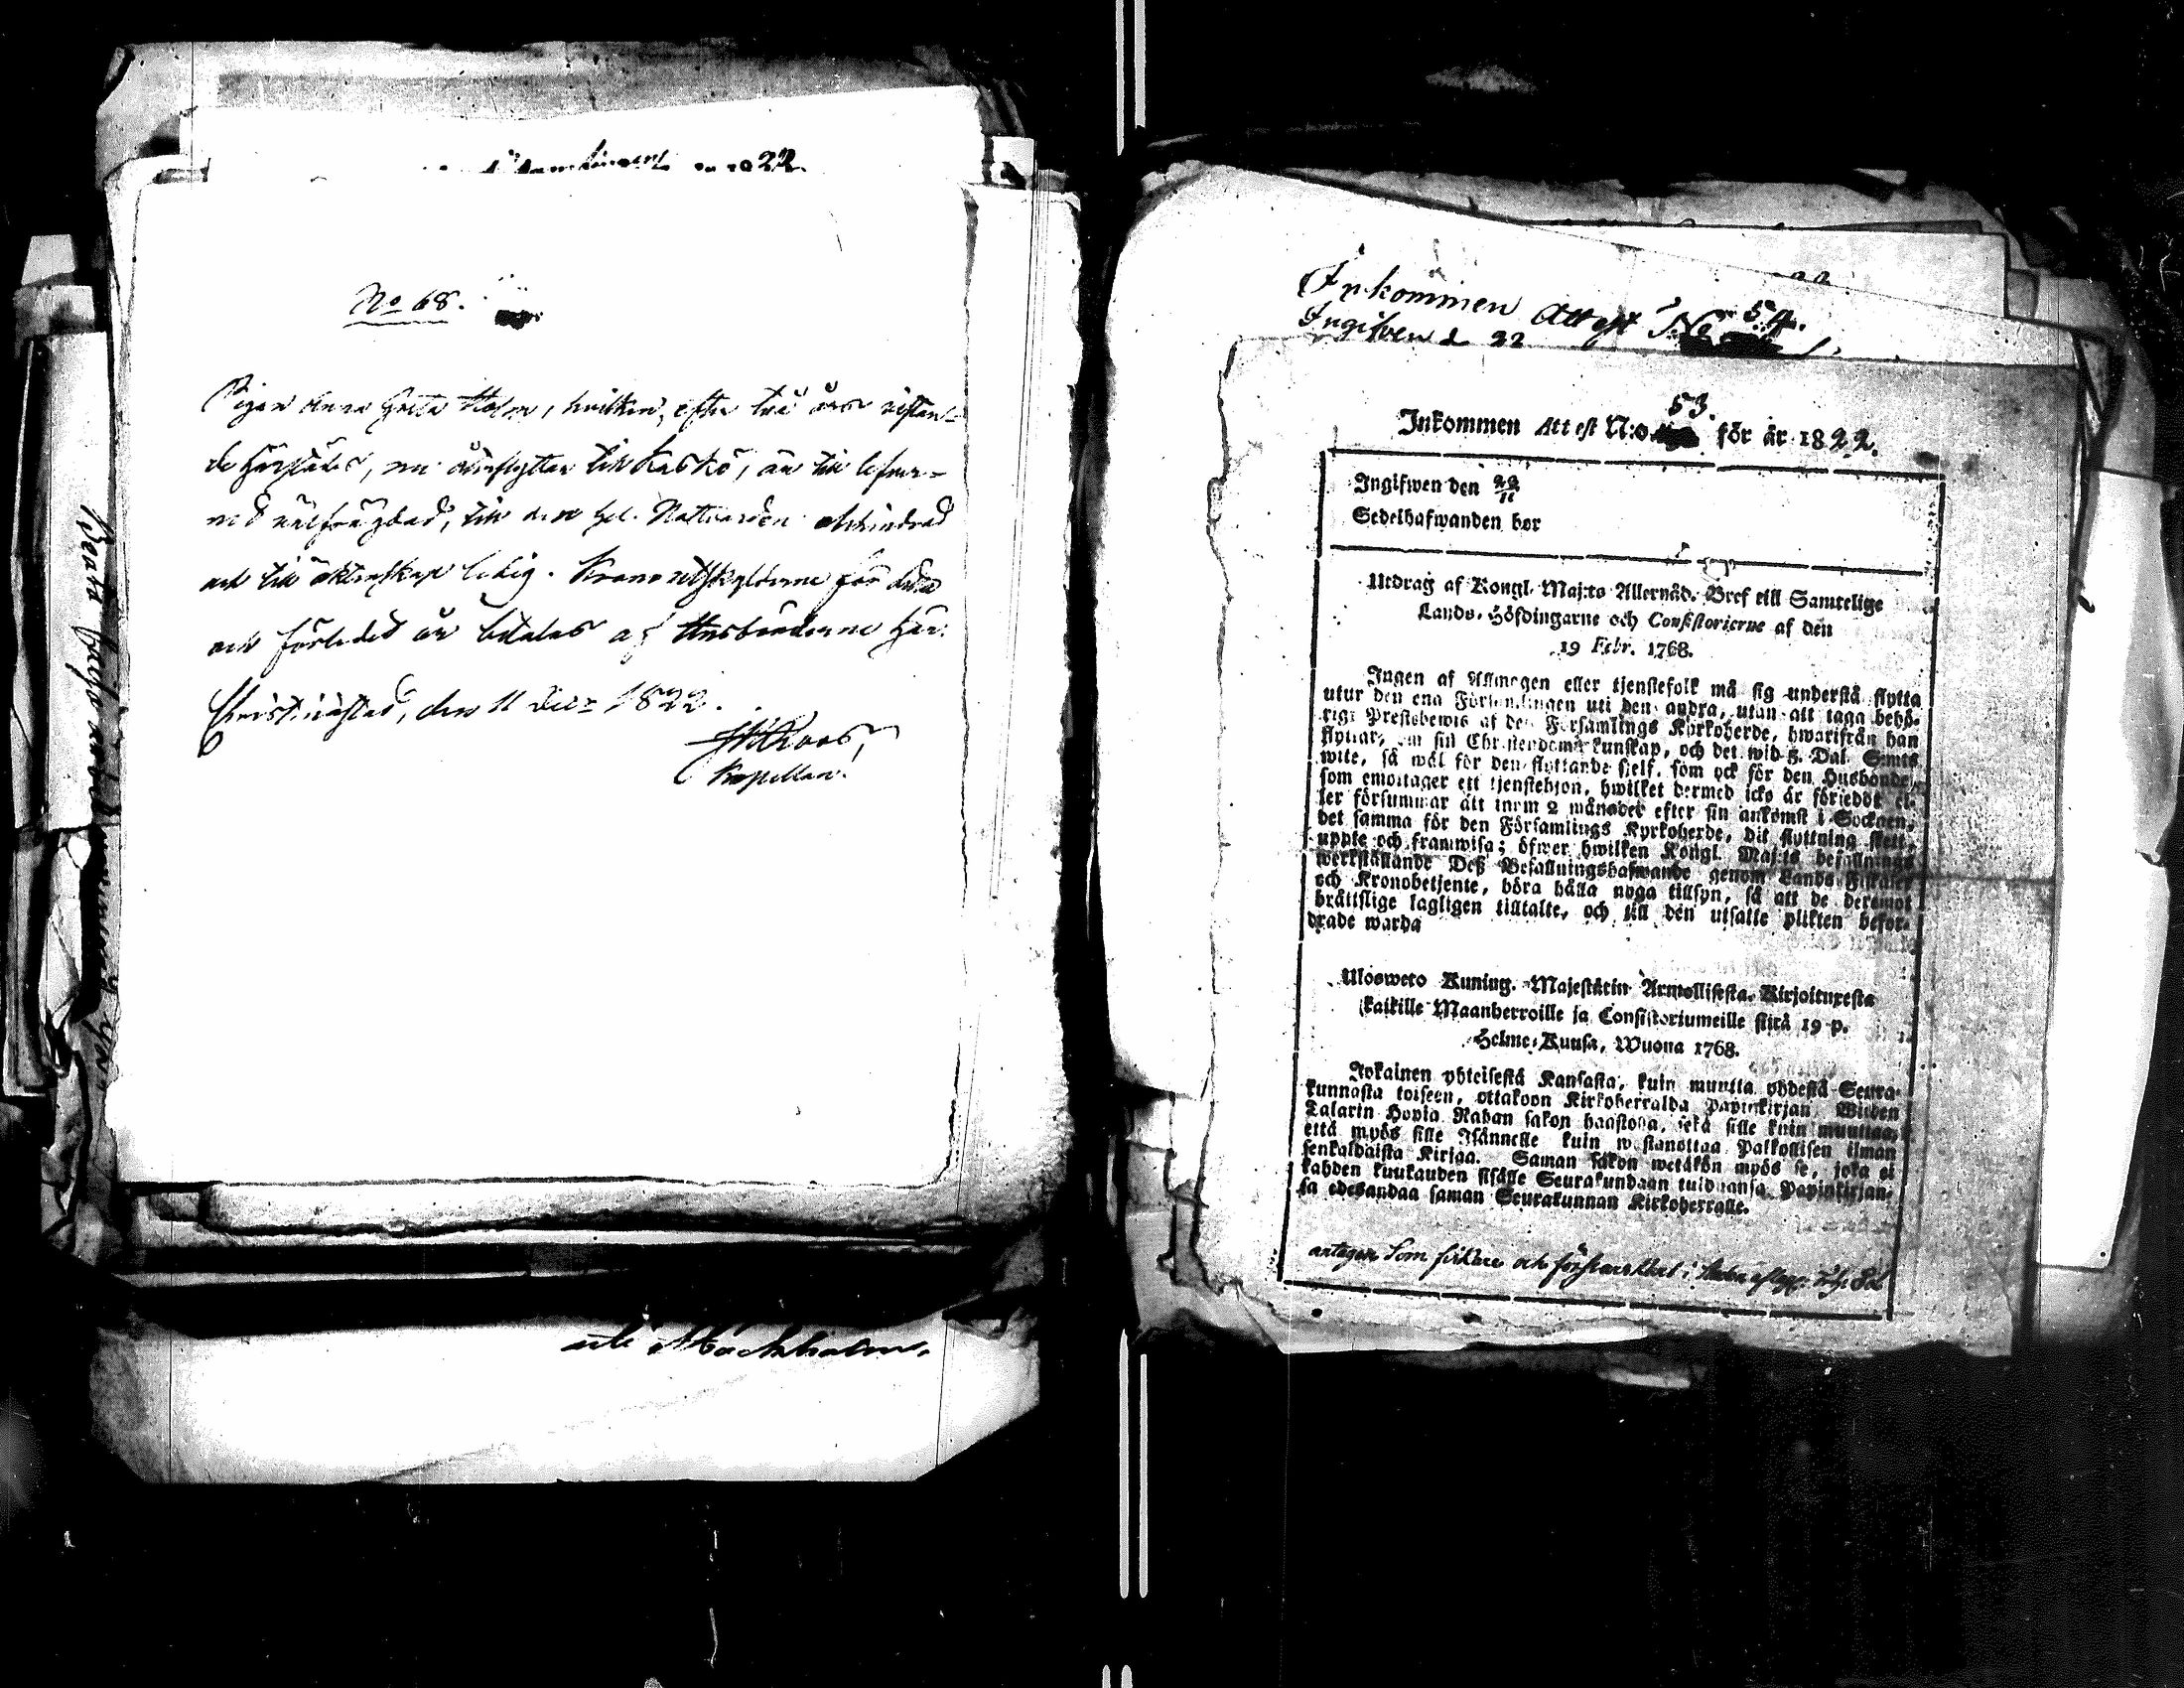 No 68.
Pigan Anna Greta Holm, hvilken, efter två års vistan-
de härstädes, nu afflyttar till Kaskö, är till lefver-
ned välfrägdad, till den hel. Nattvarden ohindrad
och till äktenskap ledig. Kronoutskylderne för detta
och förledet år betalas af Husbönderne här.
Christinæstad, den 11 Decr 1822.
Roos,
Kapellan.
Inkommen Attest No 54.
Ingifven d 22
53.
Inkommen Attest N:o för år 1822.
Ingifwen den 29/11
Sedelhafwanden bor
Utdrag af Kongl. Maj:ts Allernåd. Bref till Samtelige
Lands-Höfdingarne och Consistorierne af den
19 Febr. 1768.
Ingen af Allmogen eller tjenstefolk må sig understå flytta
utur den ena Församlingen uti den andra, utan att taga behö-
rigt Prestbewis af den Församlings Kyrkoherde, hwarifrån han
flyttar, om sin Christendoms kunskap, och det wid 3. Dal. S:mts
wite, så wäl för den flyttande sjelf, som ock för den Husbonde,
som emottager ett tjenstehjon, hwilket dermed icke är försedt el-
ler försummar att inom 2 månader efter sin ankomst i Socknen,
det samma för den Församlings Kyrkoherde, dit flyttning skett,
uppte och framwisa; öfwer hwilken Kongl. Maj:ts befallnings
werkställande Deß Befallningshafwande genom Lands Fiskaler
och Kronobetjente, böra hålla noga tillsyn, så att de deremot
bråttslige lagligen tilltalte, och till den utsatte plikten befor-
drade warda
Ulosweto Kuning. Majestätin Armollisesta Kirjoituxesta
kaikille Maanherroille ja Consistoriumeille siitä 19 p.
Helme-Kuusa, Wuona 1768.
Jokainen yhteisestä Kansasta, kuin muutta yhdestä Seura-
kunnasta toiseen, ottakoon Kirkoherralda Papinkirjan Wiiden
Talarin Hopia Rahan sakon haastolla, sekä sille kuin muuttaa,
että myös sille Isännelle kuin wastanottaa Palkollisen ilman
senkaldaista Kirjaa. Saman sakon wetäkön myös se, joka ei
kahden kuukauden sisälle Seurakundaan tulduansa Papinkirjan-
sa edesandaa saman Seurakunnan Kirkoherralle.
antagen som fiskare och